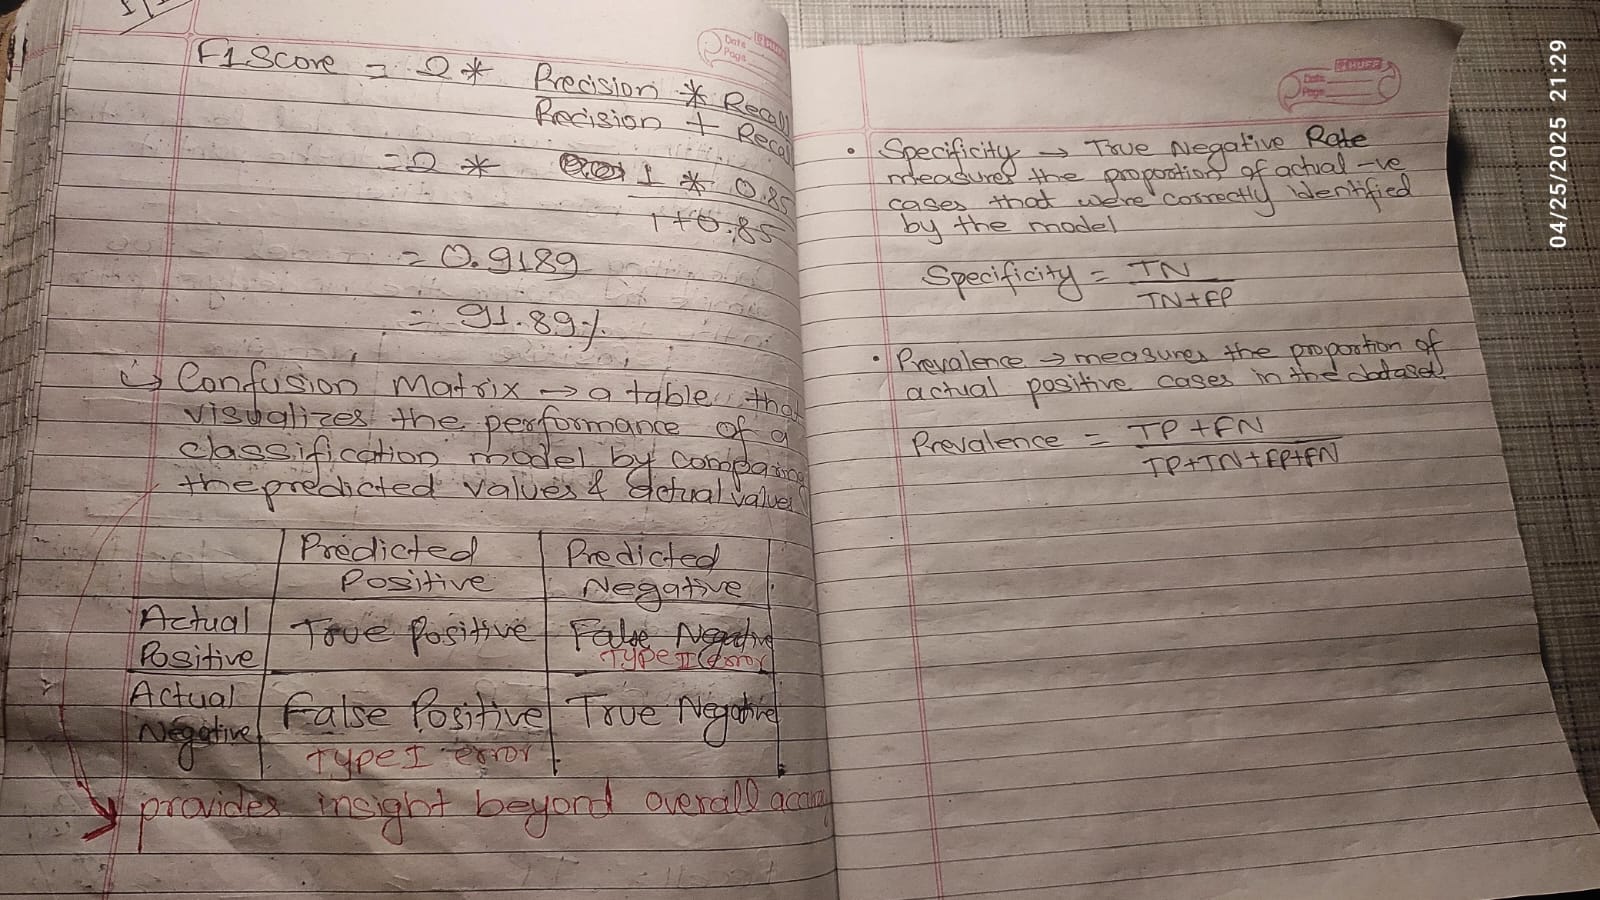 F1 Score = 2 * Precision * Recall
Precision + Recall
= 2 * 1 * 0.85
1 + 0.85
= 0.9189
= 91.89%
↳ Confusion Matrix → a table that
visualizes the performance of a
classification model by comparing
the predicted values & actual values
Predicted Positive
Predicted Negative
Actual Positive
True Positive
False Negative
Type II error
Actual Negative
False Positive
Type I error
True Negative
provides insight beyond overall
Date
Page
HUFF
Date
Page
• Specificity → True Negative Rate
measures the proportion of actual -ve
cases that were correctly identified
by the model
Specificity = TN
TN+FP
• Prevalence → measures the proportion of
actual positive cases in the dataset
Prevalence = TP + FN
TP+TN+FP+FN
04/25/2025 21:29